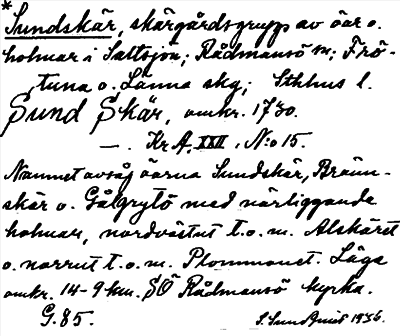 * Sundskär, skärgårdsgrupp av öar o.
holmar i Saltsjön; Rådmansö sn; Frö-
tuna o. Länna skg; Sthlms l.
Sund Skär, omkr. 1730.
—. Kr A, XXII, N:o 15.
Namnet avsåg öarna Sundskär, Bränn-
skär o. Gålgrytö med närliggande
holmar, nordvästut t.o.m. Alskäret
o. norrut t.o.m. Plommonet. Läge
omkr. 14-9 km. SÖ Rådmansö kyrka.
G. 85.